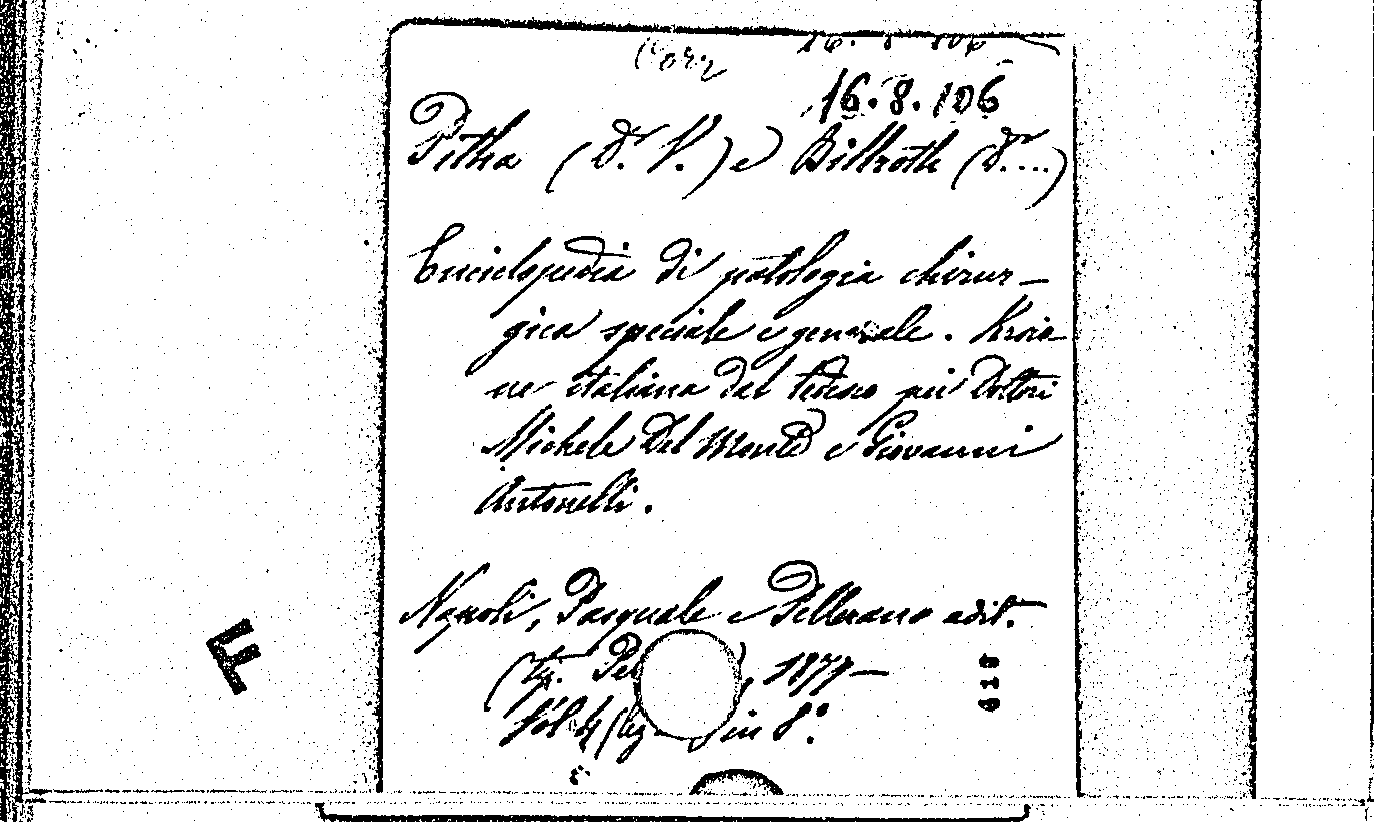 Corr 16. 8 106
16.8.106
Pitha (Dr. V.) e Billroth (Dr....)
Enciclopedia di patologia chirur-
gica speciale e generale.
ne italiana dal tedesco pei Dottori
Michele Del Monte e Giovanni
Antonelli.
Napoli, Pasquale e Pellerano edit.
(Tip. 1877-
Vol. 4 in 8°.
F
618